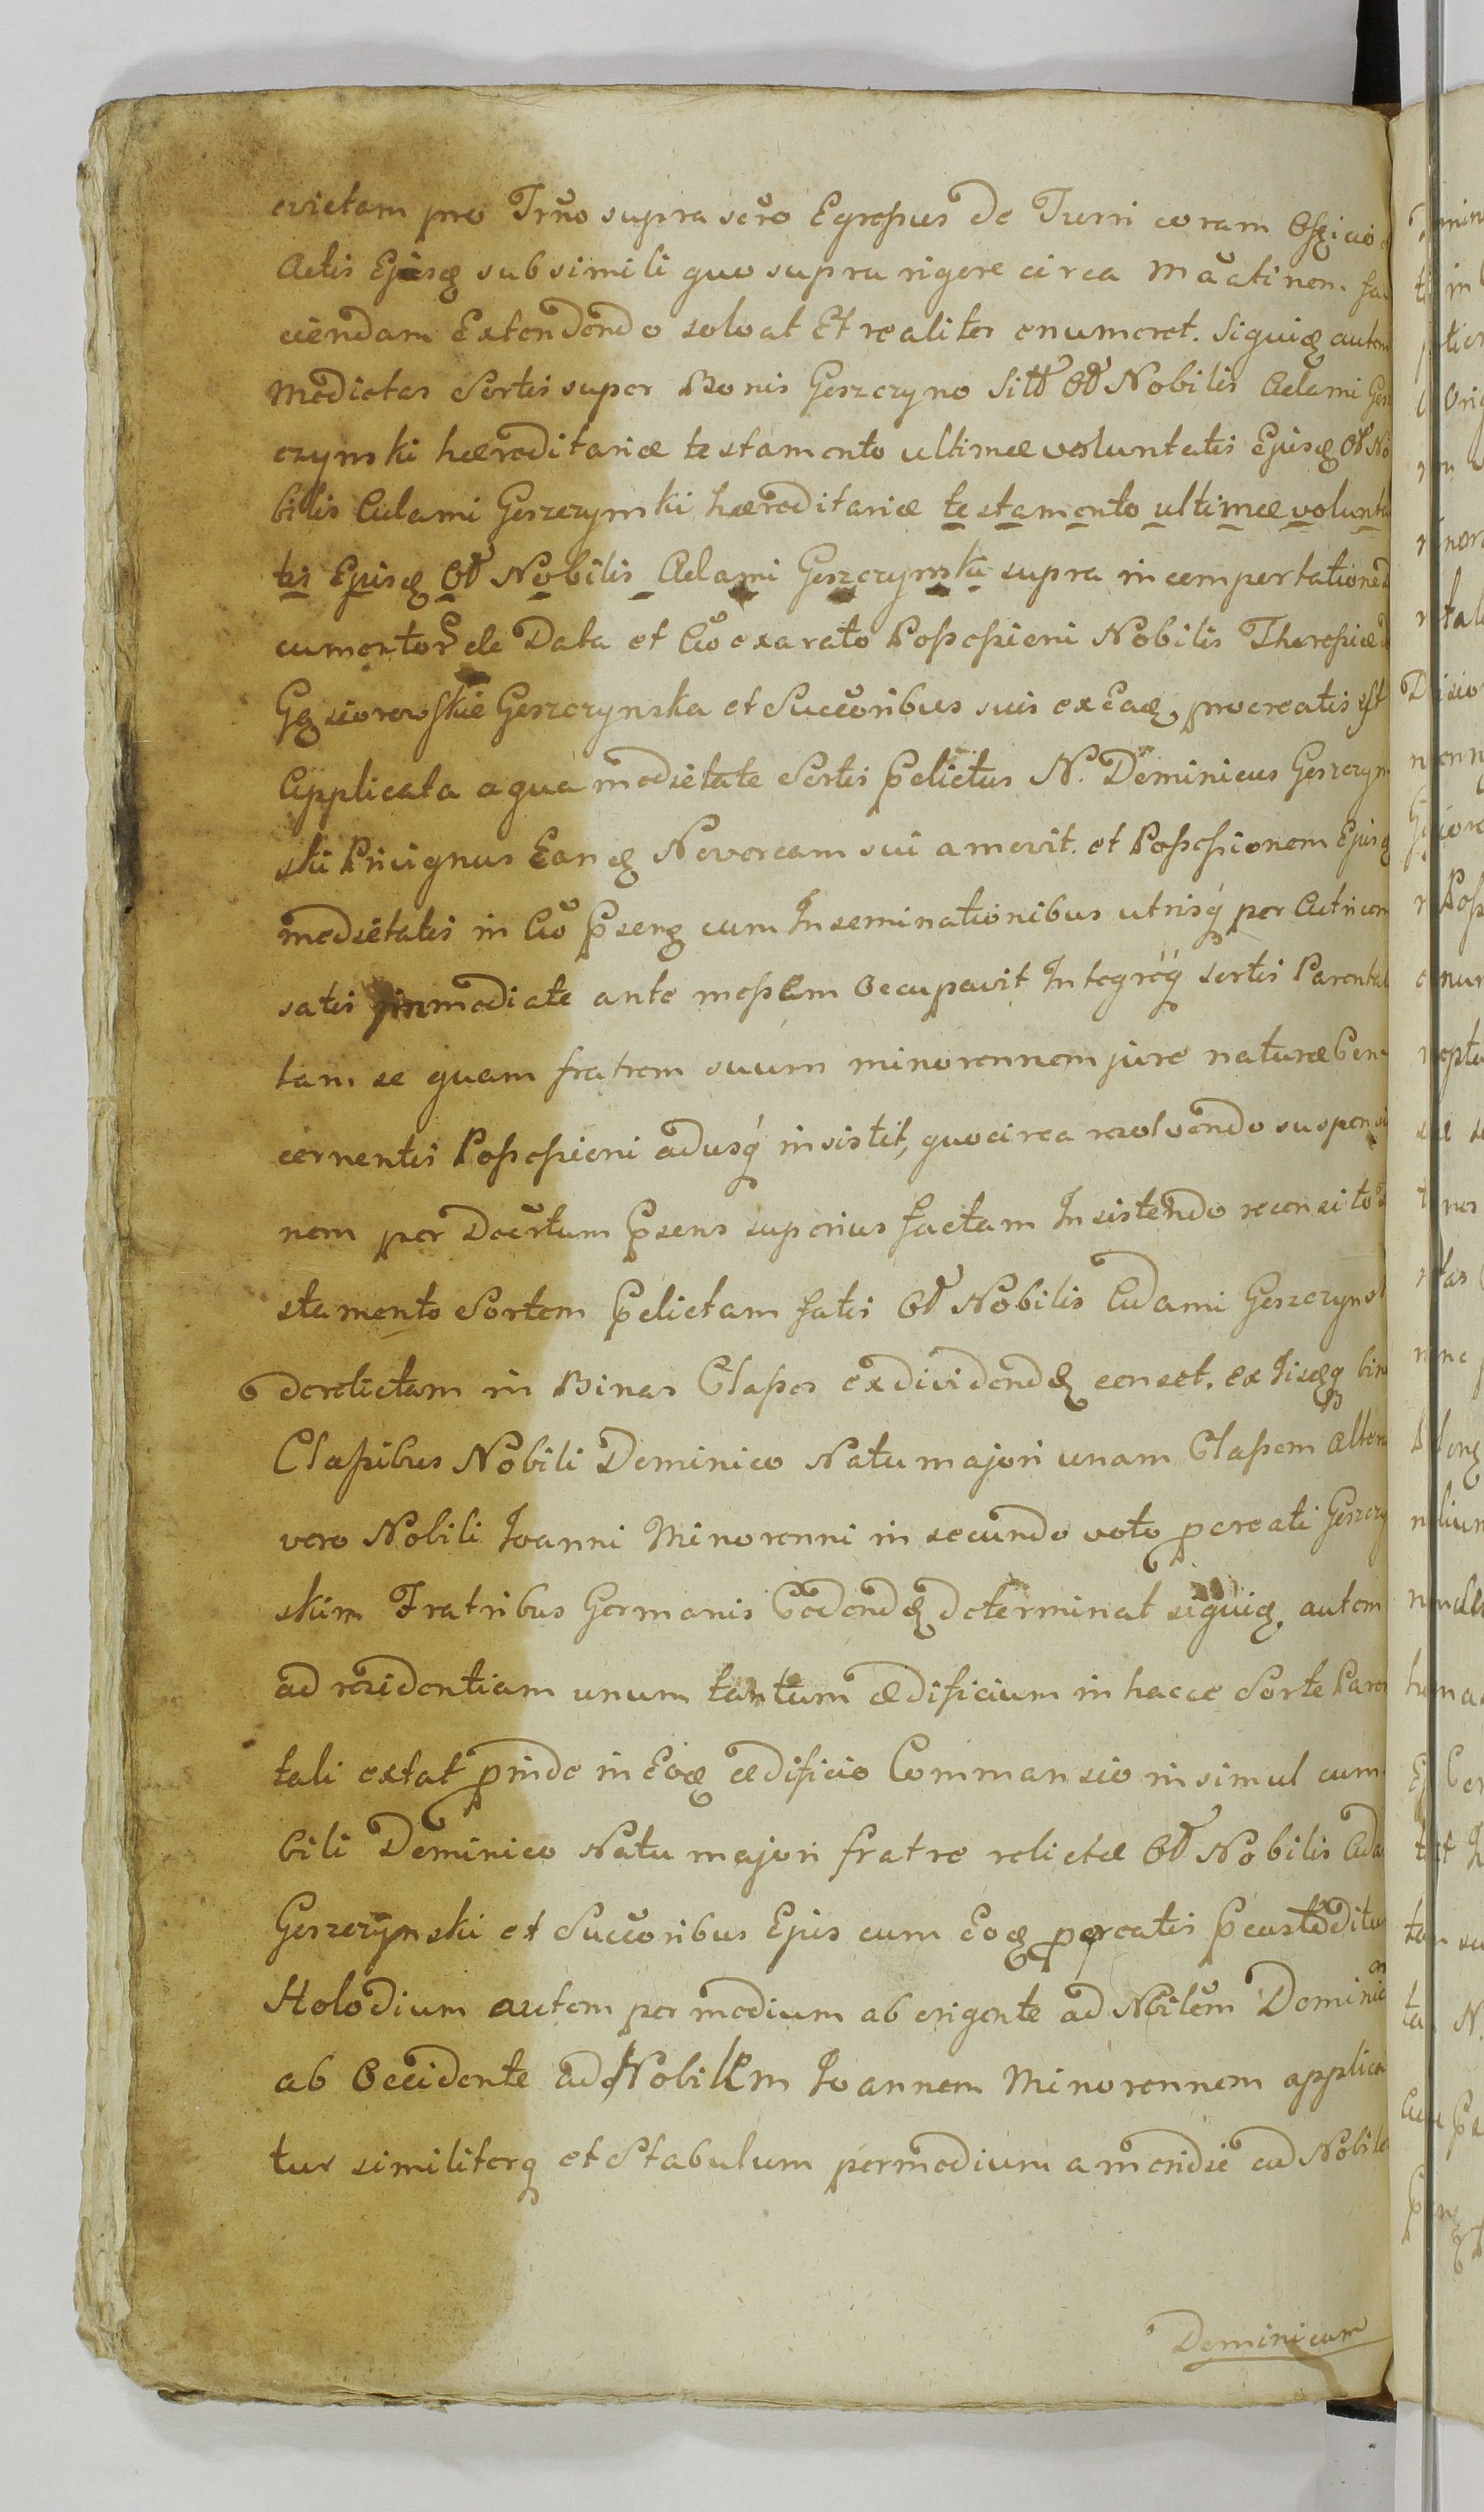 evictam pro Trño supra scrõ Egressus de Turri coram Officio
Actis Ejusq sub simili quo supra rigore circa Mãctinem fa
ciendam Extendendo solvat Et realiter enumeret. Siquiq autem
Medietas Sortis super Bonis Geszczyno Sitt Ol Nobilis Adami Gesz
czynski hæreditariæ testamento ultimæ voluntatis Ejusq Ol No
bilis Adami Geszczynski hæreditariæ testamento ultimæ volunta
tis Ejusq Ol Nobilis Adami Geszczynski supra in comportatione
cumentor de Data et Aõ exarato Possessioni Nobilis Theresiæ
Gąsiorowskie Geszczynska et Succõribus suis ex Eaq procreatis est
Applicata a qua medietate Sortis Pelictus N. Dominicus Geszczyn
ski Privignus Eanq Novercam sui amovit. et Possessionem Ejusq
medietatis in Aõ Pseng cum Inseminationibus utrisq per Actricem
satis immediate ante messem Occupavit Integréq sortis Parental
tam se quam fratrem suum minorennem jure naturæ Con
cernentis Possessioni adusq insistit, quocirca resolvendo suspensi
nem per Decrtum Psens superius factam Insistendo recensito
stamento Sortem Pelictam fatis Ol Nobilis Adami Geszczynsk
derelictam in Binas Classes exdividendq censet. ex Iisqq bin
Classibus Nobili Dominico Natu majori unam Classem altera
vero Nobili Joanni Minorenni in secundo voto pcreati Geszczy
skim Fratribus Germanis Cedendq determinat siquiq autem
ad residentiam unum tantum ædificium in hacce Sorte Paren
tali extat pinde in Eoq ædificio Commansio insimul cum
bili Dominico Natu majori fratre relictæ Ol Nobilis Ada
Geszczynski et Succõribus Ejus cum Eoq pcreatis Pcustoditur
Holodium autem per medium ab origente ad Nbilem Dominic
ab Occidente ad Nobilem Joannem Minorennem applica
tur similiterq et Stabulum per medium a meridie ad Nobile
Dominicum